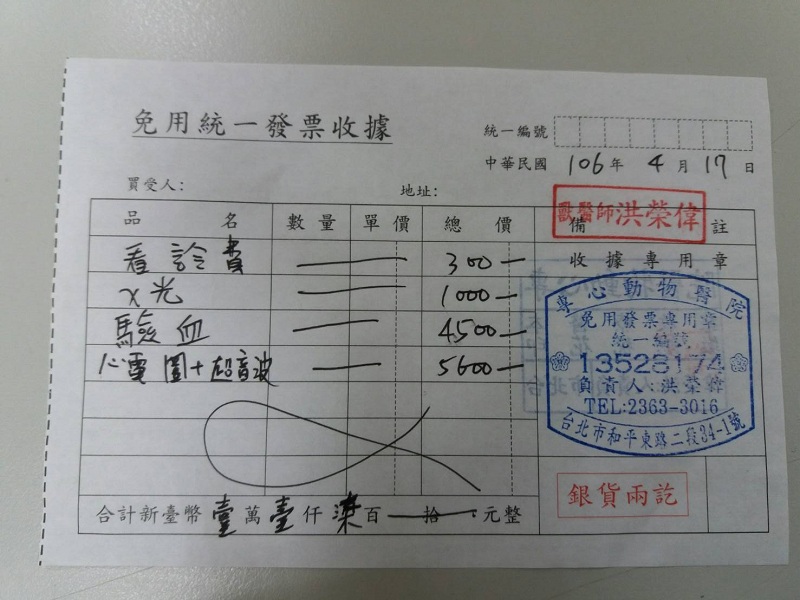 免用統一發票收據
統一編號
中華民國 106 年 4 月 17 日
買受人: 地址:
獸醫師洪榮偉
品名 數量 單價 總價 備註
看診費 300
收據專用章
X光 1000
驗血 4500
心電圖+超音波 5600
專心動物醫院
免用發票專用章
統一編號
13528174
負責人:洪榮偉
TEL:2363-3016
台北市和平東路二段34-1號
銀貨兩訖
合計新臺幣 壹 萬 壹 仟 柒 百 拾 元整